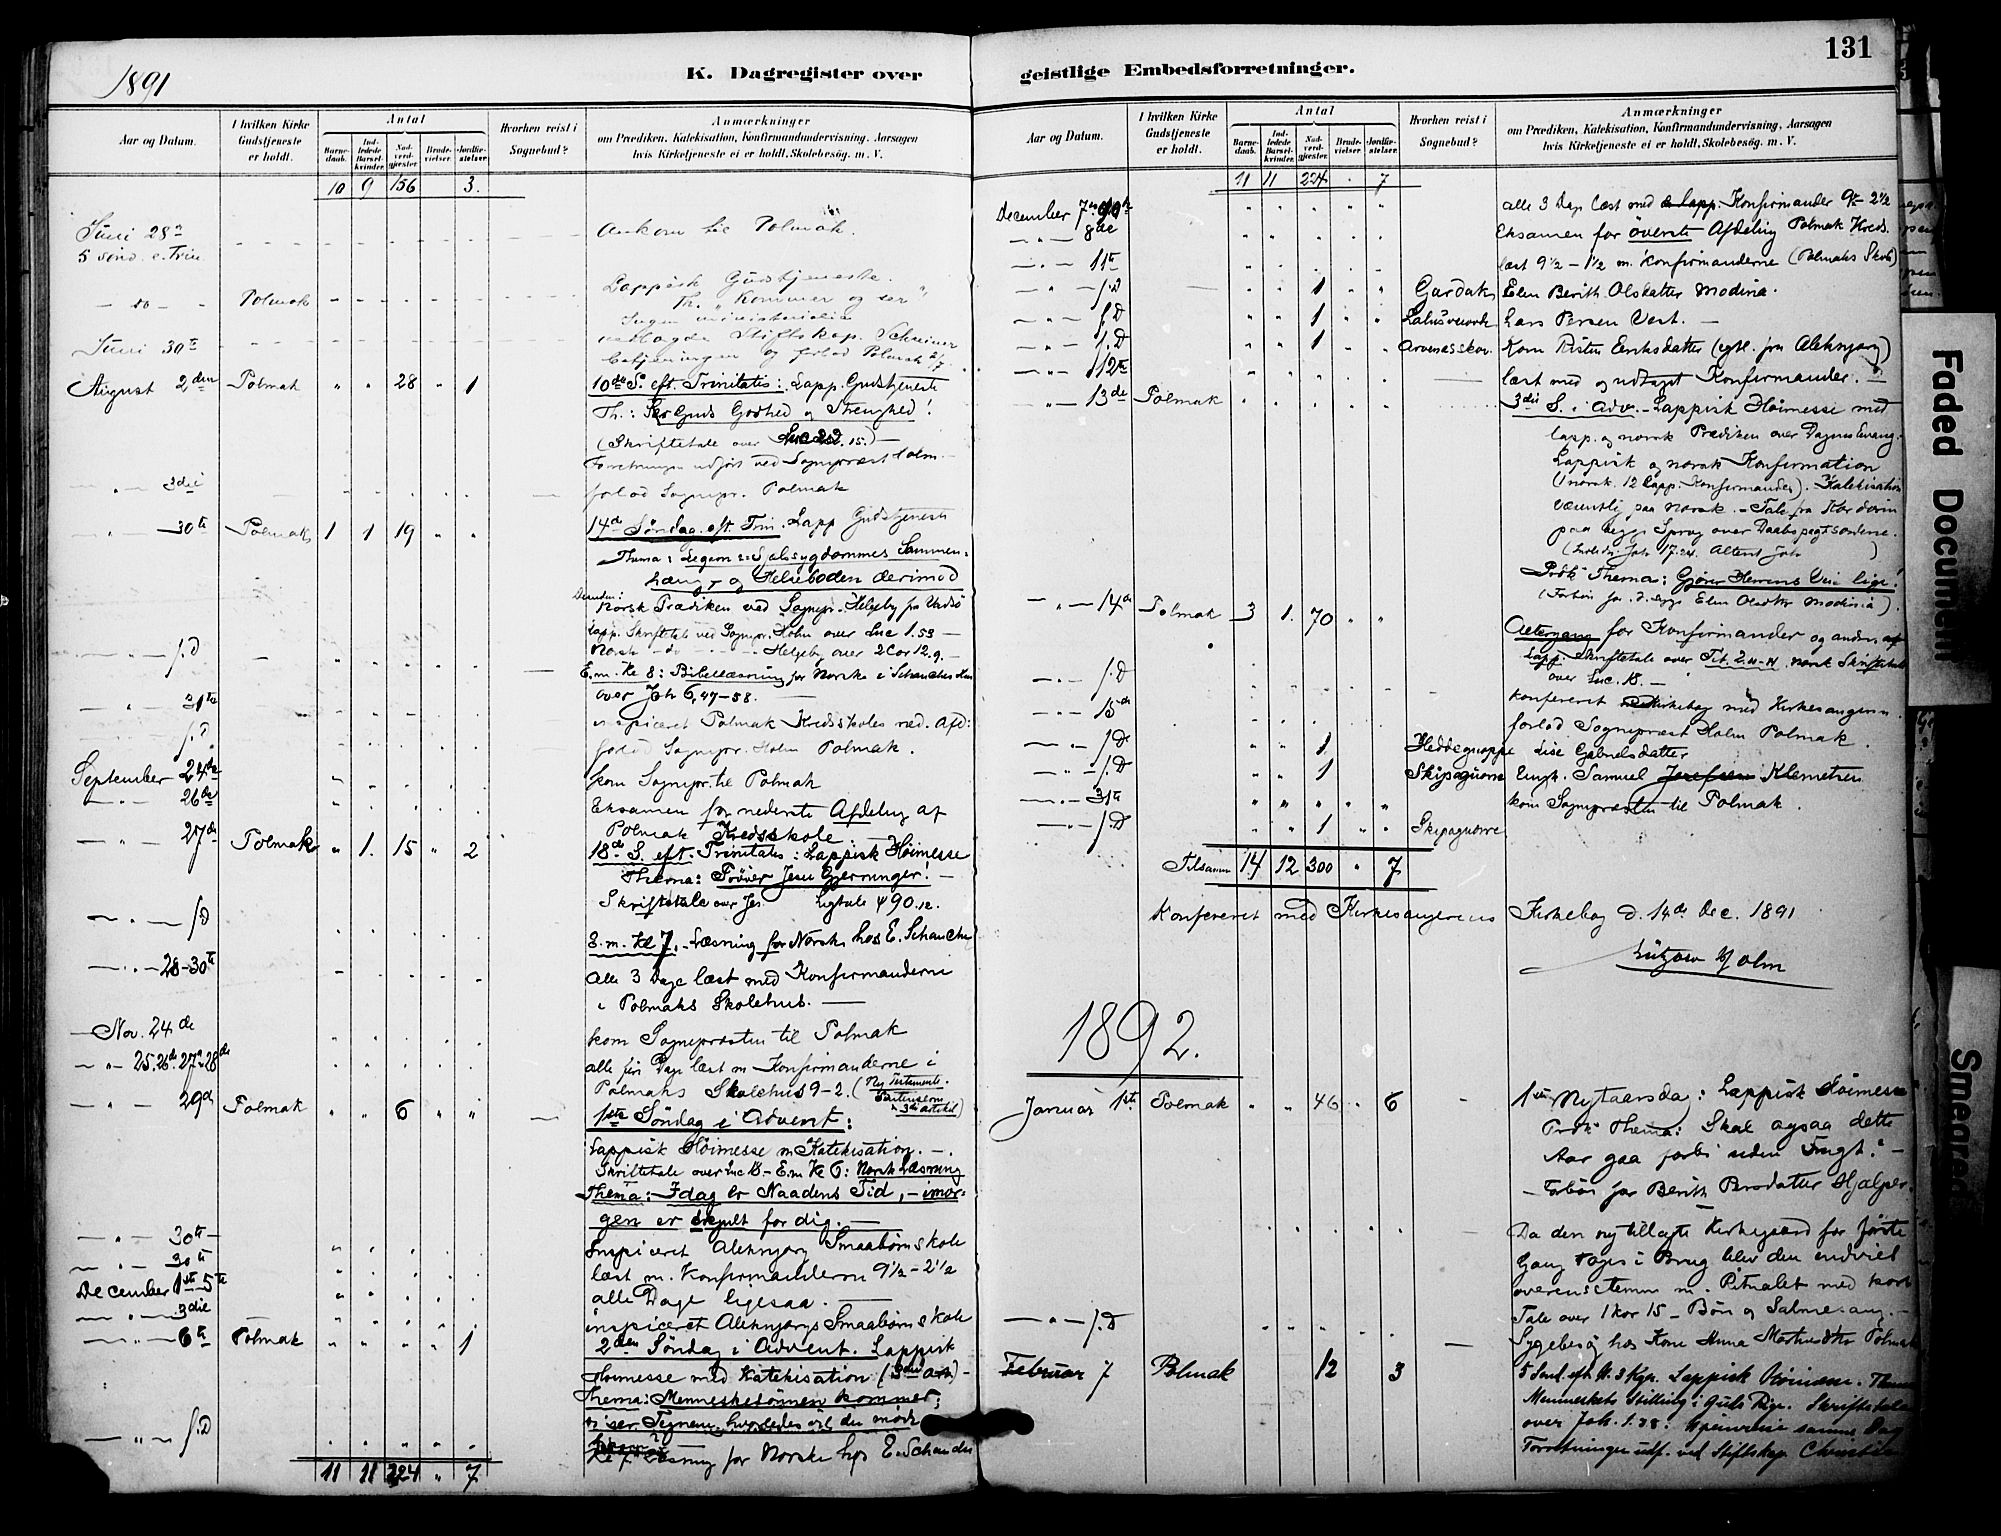 1891
K. Dagregister over
Aar og Datum.
I hvilken Kirke Gudstjeneste er holdt.
Antal
Barne-daab.
Ind-ledede Barsel-kvinder.
Nad-verd-gjester.
Brude-vielser.
Jordfæ-stelser.
Hvorhen reist i Sognebud?
Anmærkninger
om Prædiken, Katekisation, Konfirmandundervisning, Aarsagen
hvis Kirketjeneste ei er holdt, Skolebesög. m. V.
10 9 156 3.
Juni 28
5 Sönd. e. Trin
Ankom til Polmak.
- do - Polmak
Lappisk Gudstjeneste.
Th. "Kommer og ser"
Ingen ministerialia
Juni 30te
Stiftskap. Schreiner
Betjeningen og forlod Polmak 2/7
August 2den Polmak " " 28 " 1
10de S. eft. Trinitatis: Lapp. Gudstjeneste
Th.: Se Guds Godhed og Strenghed!
(Skriftetale over 15.) —
Forretningen udfört ved Sogneprest Holm. —
— " — 3die
forlod Sognepr. Polmak
— " — 30te Polmak 1 1 19 " "
14de Söndag eft. Trin. Lapp Gudstjeneste
Thema: Legem- og Sjælssygdommes Sammen-
hæng, og Helseboden derimod
Desuden:
Norsk Prædiken ved Sognepr. Helgeby fra Vadsö
Lapp. Skriftetale ved Sognepr. Holm over Luc 1.53 —
Norsk — do — Helgeby over 2 Cor 12.9. —
— " — s.D
E.m. Kl 8: Bibellæsning for Norske i Schanches Hus
over Joh 6,47-58. —
— " — 31te
inspiceret Polmak Kredsskoles ned. Afd:
s.D
forlod Sognepr. Holm Polmak.
September 24de
kom Sognepr. til Polmak
— " — 26de
Eksamen for nederste Afdeling af
Polmak Kredsskole —
— " — 27de Polmak " 1. 15 " 2
18de S. eft. Trinitatis: Lappisk Höimesse
Thema: Pröver Jesu Gjerninger! —
Skriftetale over Jes. Ligtale Ψ 90.12.
— " — s.D
E.m. Kl 7. - Læsning for Norske hos E. Schanche
— " — 28-30te
Alle 3 Dage læst med Konfirmanderne
i Polmaks Skolehus. —
— Nov. 24de
kom Sognepræsten til Polmak
— " — 25. 26de. 27. 28de
alle fire Dage læst m Konfirmanderne i
Polmaks Skolehus 9-2. (Ny Testamente.
3die artikel)
— " — 29de Polmak " " 6 " "
1ste Söndag i Advent:
Lappisk Höimesse m Katekisation. —.
Skriftetale over Luc 18 - E.m Kl 6: Norsk Læsning
Thema: Idag er Naadens Tid, - imor-
gen er skjult for dig. —
— " — 30te —
Inspiceret Aleknjarg Smaabörnskole
— " — 30te
læst m. Konfirmanderne 9½ - 2½
December 1ste-5te
alle Dage ligesaa. —
— " — 3die
inspiceret Aleknjargs Smaabörnskole
— " — 6te Polmak " " " " 1
2den Söndag i Advent. Lappisk
Höimesse med Katekisation (3die art) —
Thema: Menneskesönnen kommer;
vi ser Tegnene, hvorledes vil du möde
— " — s.D
Kl 7 Læsning for Norske hos E. Schanche
11 11 224 " 7
geistlige Embedsforretninger.
131
Aar og Datum.
I hvilken Kirke Gudstjeneste er holdt.
Antal
Barne-daab.
Ind-ledede Barsel-kvinder.
Nad-verd-gjester.
Brude-vielser.
Jordfæ-stelser.
Hvorhen reist i Sognebud?
Anmærkninger
om Prædiken, Katekisation, Konfirmandundervisning, Aarsagen
hvis Kirketjeneste ei er holdt, Skolebesög. m. V.
11 11 224 " 7
December 7de
alle 3 Dage læst med Lapp. Konfirmander 9½ - 2½
— " — 8de
Eksamen for överste Afdeling Polmak Kreds.
— " — 11te
læst 9½ - 1½ m. Konfirmanderne (Polmaks Skole)
— " — s.D 1 " " Gardak
Elen Berith Olsdatter Modina.
— " — s.D 1 " "
Lars Persen Vest. —
— " — s.D 1 " "
Kone Kristen Eriksdatter (egtl. fra Aleknjarg)
— " — 12te
læst med og udtaget Konfirmander. —
— " — 13de Polmak
3die S. i Adv. - Lappisk Höimesse med
lapp. og norsk Prædiken over Dagens Evang.
Lappisk og norsk Konfirmation
(1 norsk. 12 Lapp. Konfirmander). Katekisation
væsentlig paa norsk. - Tale fra Kordören
paa begge Sprog over Daabspagtsordene.
Præk. Thema: Gjörer Herrens Vei lige!
(Forbön for d. syge Elen Olsdtr Modina).
— " — 14de Polmak 3 1. 70 " "
Altergang for Konfirmander og andre
Lapp. Skriftetale over Tit. 2.11-14. norsk Skriftetale
over Luc. 18. —
— " — s.D
konfereret Kirkebog med Kirkesangeren.
— " — 15de
forlod Sogneprest Holm Polmak.
— " — s.D 1 Heddeguoppe
Lise Gabrielsdatter
— " — s.D " " 1 Skipaguorre
Ungk. Samuel Josefsen Klemetsen
— " — 31te
kom Sognepræsten til Polmak.
— " — s.D " " 1 " " Skipaguorre
Tilsammen 14 12 300 " 7
Konfereret med Kirkesangerens Kirkebog d. 14de Dec. 1891
Lützow Holm
1892.
Januar 1ste. Polmak " " 46 " 6
1ste Nytaarsdag: Lappisk Höimesse
Præk Thema: Skal ogsaa dette
Aar gaa forbi uden Frugt? —
- Forbön for Berith Brodatter Hjelper.
Da den ny tillagte Kirkegaard for förste
Gang toges i Brug blev den indviet
overensstemm m. Ritualet med kort
Tale over 1 Kor 15 - Bön og Salmesang. —
— " — s.D
Sygebesög hos Kone Anna Mortensdtr Polmak
Februar 7 Polmak 12 3
5 Sönd. eft. H. 3 Kgr. Lappisk Höimesse. Thema
Menneskets Stilling i Guds Rige. Skriftetale
over Joh. 1.28: Hjemreise samme Dag
Forretninger udf. ved Stiftskap. Christi
Faded Document
Smeared